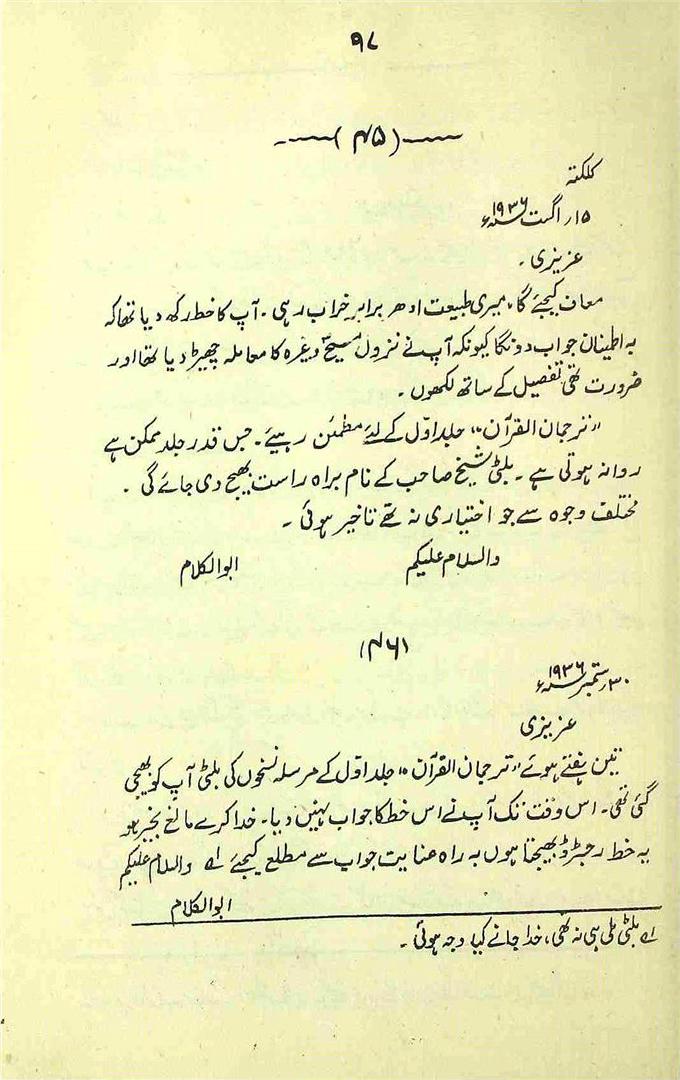 ۹۸
(۴۵)
کلکتہ
۱۵؍ اگست ۱۹۳۶ء
عزیزی۔
معاف کیجئے گا، میری طبیعت ادھر برابر خراب رہی۔ آپ کا خط رکھ دیا تھا کہ
بہ اطینان جواب دونگا کیونکہ آپ نے نزول مسیحؑ وغیرہ کا معاملہ چھیڑ دیا تھا اور
ضرورت تھی تفصیل کے ساتھ لکھوں۔
"ترجمان القرآن" جلد اوّل کے لئے مطمئن رہیے۔ جس قدر جلد ممکن ہے
روانہ ہوتی ہے۔ بلٹی شیخ صاحب کے نام براہ راست بھیج دی جائے گی۔
مختلف وجوہ سے جو اختیاری نہ تھے تاخیر ہوئی۔
والسلام علیکم ابوالکلام
(۴۶)
۳۰؍ ستمبر ۱۹۳۶ء
عزیزی
تین ہفتے ہوئے "ترجمان القرآن" جلد اوّل کے مرسلہ نسخوں کی بلٹی آپ کو بھیجی
گئی تھی۔ اس وقت تک آپ نے اس خط کا جواب نہیں دیا۔ خدا کرے مانع بخیر ہو
یہ خط رجسٹرڈ بھیجتا ہوں بہ راہ عنایت جواب سے مطلع کیجئے لہ والسلام علیکم
ابوالکلام
لہ بلٹی ملی ہی نہ تھی، خدا جانے کیا وجہ ہوئی۔